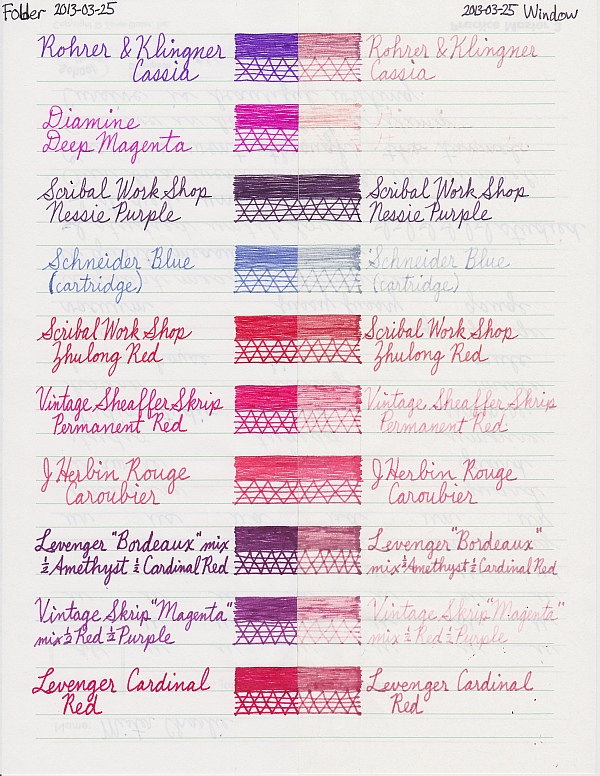 Folder 2013-03-25
2013-03-25 Window
Rohrer & Klingner
Cassia
Rohrer & Klingner
Cassia
Diamine
Deep Magenta
Diamine
Scribal Work Shop
Nessie Purple
Scribal Work Shop
Nessie Purple
Schneider Blue
(cartridge)
Schneider Blue
(cartridge)
Scribal Work Shop
Zhulong Red
Scribal Work Shop
Zhulong Red
Vintage Sheaffer Skrip
Permanent Red
Vintage Sheaffer Skrip
Permanent Red
J Herbin Rouge
Caroubier
J Herbin Rouge
Caroubier
Levenger "Bordeaux" mix
½ Amethyst ½ Cardinal Red
Levenger "Bordeaux"
mix ½ Amethyst ½ Cardinal Red
Vintage Skrip "Magenta"
mix ½ Red ½ Purple
Vintage Skrip "Magenta"
mix ½ Red ½ Purple
Levenger Cardinal
Red
Levenger Cardinal
Red